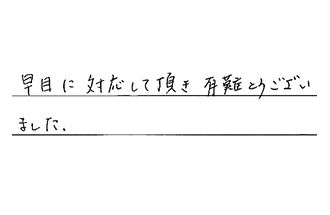 早目に対応して頂き有難とうござい
ました。